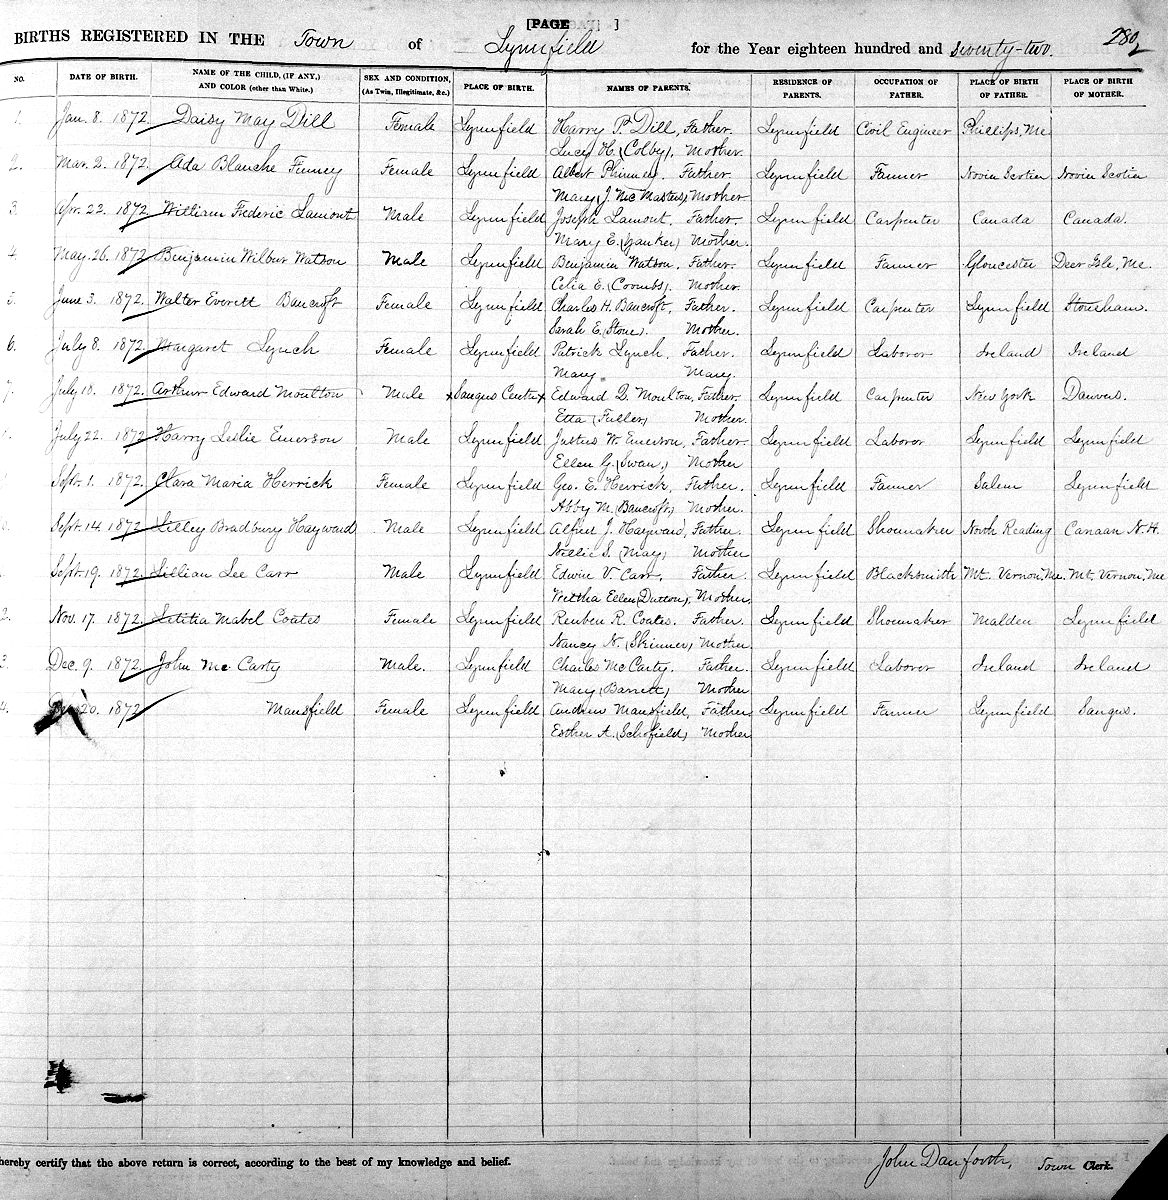 [PAGE ]
BIRTHS REGISTERED IN THE Town of Lynnfield for the Year eighteen hundred and seventy-two. 280
NO. DATE OF BIRTH. NAME OF THE CHILD, (IF ANY,) AND COLOR (other than White.) SEX AND CONDITION, (As Twin, Illegitimate, &c.) PLACE OF BIRTH. NAMES OF PARENTS. RESIDENCE OF PARENTS. OCCUPATION OF FATHER. PLACE OF BIRTH OF FATHER. PLACE OF BIRTH OF MOTHER.
1. Jan. 8. 1872. Daisy May Dill Female Lynnfield Harry P. Dill, Father. Lynnfield Civil Engineer Phillips, Me
Lucy H. (Colby), Mother.
2. Mar. 2. 1872. Ada Blanche Finney Female Lynnfield Albert Phinney, Father. Lynnfield Farmer Novia Scotia Novia Scotia
Mary (J. Mc Masters) Mother
3. Apr. 23. 1872 William Frederic Lamont Male Lynnfield Joseph Lamont, Father. Lynnfield Carpenter Canada Canada.
Mary E. (Yanker) Mother.
4. May. 26. 1872 Benjamin Wilbur Watson Male Lynnfield Benjamin Watson, Father. Lynnfield Farmer Gloucester Deer Isle, Me.
Celia E. (Coombs). Mother.
5. June 3. 1872. Walter Everett Bancroft Female Lynnfield Charles H. Bancroft, Father. Lynnfield Carpenter Lynnfield Stoneham.
Sarah E. (Stone). Mother.
6. July 8. 1872. Margaret Lynch Female Lynnfield Patrick Lynch, Father. Lynnfield Laboror Ireland Ireland
Mary " Mary.
7. July 18. 1872. Arthur Edward Moulton Male x Saugus Centre x Edward D. Moulton, Father. Lynnfield Carpenter New York Danvers.
Etta (Fuller) Mother.
July 22. 1872 Harry Leslie Emerson Male Lynnfield Justus W. Emerson, Father. Lynnfield Laboror Lynnfield Lynnfield
Ellen G. (Swan,) Mother
Sept. 1. 1872. Clara Maria Herrick Female Lynnfield Geo. E. Herrick, Father. Lynnfield Farmer Salem Lynnfield
Abby M. (Bancroft) Mother.
Sept. 14 1872 Lilley Bradbury Hayward Male Lynnfield Alfred J. Hayward, Father. Lynnfield Shoemaker North Reading Canaan N.H.
Nellie S. (May) Mother
Sept. 19. 1872. Lillian Lee Carr Male Lynnfield Edwin V. Carr, Father. Lynnfield Blacksmith Mt. Vernon, Me. Mt. Vernon, Me
Ellen (Dutton), Mother.
2. Nov. 17. 1872. Letitia Mabel Coates Female Lynnfield Reuben R. Coates. Father. Lynnfield Shoemaker Malden Lynnfield
Nancy N. (Skinner) Mother
3. Dec. 9. 1872. John Mc Carty Male. Lynnfield Charles Mc Carty. Father. Lynnfield Laboror Ireland Ireland
Mary (Barrett) Mother
4. Dec. 20. 1872 Mansfield Female Lynnfield Andrew Mansfield, Father, Lynnfield Farmer Lynnfield Saugus.
Esther A. (Schofield) Mother
hereby certify that the above return is correct, according to the best of my knowledge and belief. John Danforth, Town Clerk.